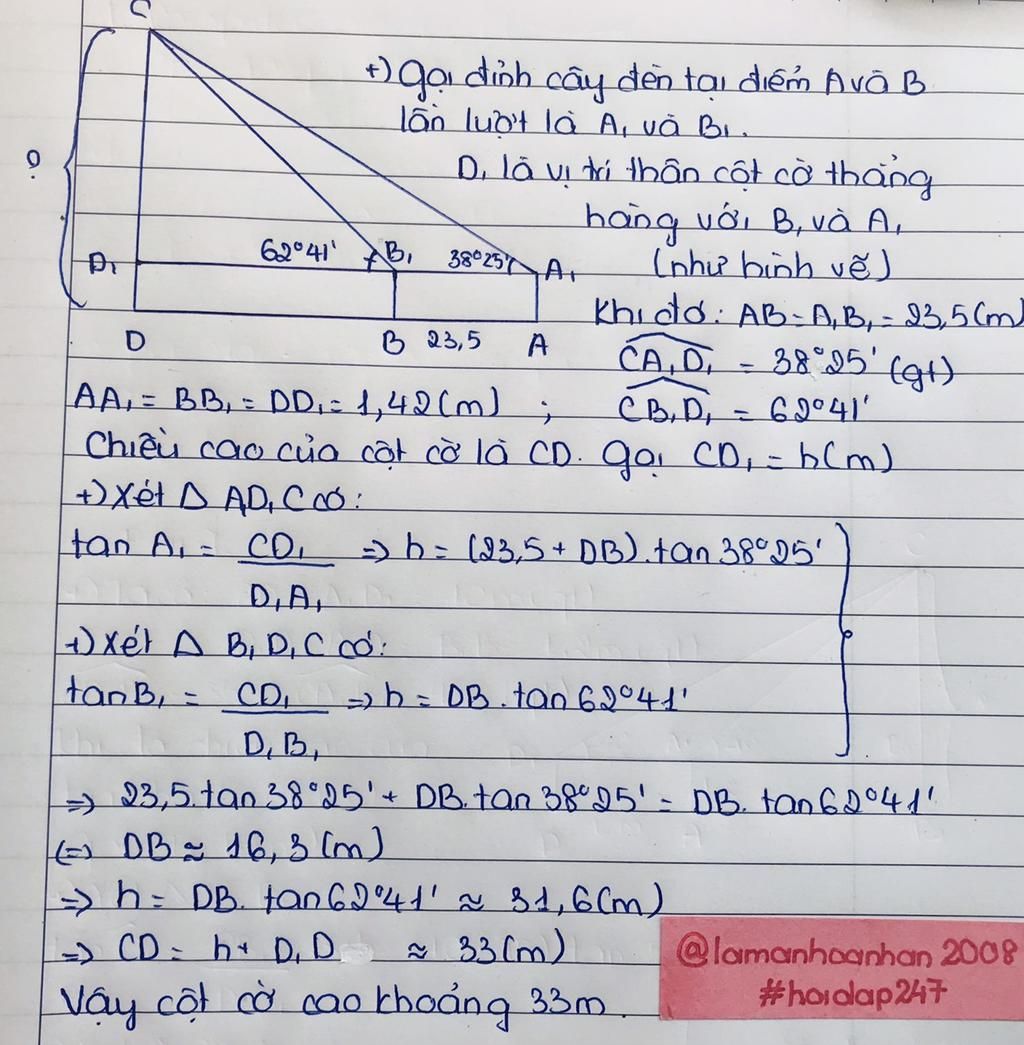 C
+) Gọi đỉnh cây đèn tại điểm A và B
lần lượt là A₁ và B₁.
?
D₁ là vị trí thân cột cờ thẳng
hàng với B₁ và A₁
62°41' B₁ 38°25' A₁
D₁
(như hình vẽ)
Khi đó: AB = A₁B₁ = 23,5(m)
D B 23,5 A
CA₁D₁ = 38°25' (gt)
AA₁ = BB₁ = DD₁ = 1,42(m) ; CB₁D₁ = 62°41'
Chiều cao của cột cờ là CD. Gọi CD₁ = h(m)
+) Xét Δ AD₁C có:
tan A₁ = CD₁ / D₁A₁ => h = (23,5 + DB).tan38°25'
+) Xét Δ B₁D₁C có:
tanB₁ = CD₁ / D₁B₁ => h = DB.tan62°41'
=> 23,5.tan38°25' + DB.tan38°25' = DB.tan62°41'
(=) DB ≈ 16,3(m)
=> h = DB.tan62°41' ≈ 31,6(m)
=> CD = h + D₁D ≈ 33(m)
Vậy cột cờ cao khoảng 33m.
@lamanhoanhan2008
#hoidap247